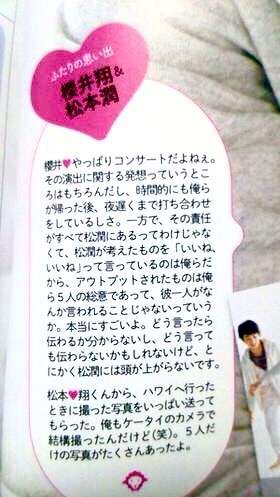 ふたりの思い出
櫻井翔&
松本潤
櫻井♥やっぱりコンサートだよねぇ。
その演出に関する発想っていうとこ
ろはもちろんだし、時間的にも俺ら
が帰った後、夜遅くまで打ち合わせ
をしているしさ。一方で、その責任
がすべて松潤にあるってわけじゃな
くて、松潤が考えたものを「いいね、
いいね」って言っているのは俺らだ
から、アウトプットされたものは俺
ら5人の総意であって、彼一人がな
んか言われることじゃないっていう
か。本当にすごいよ。どう言ったら
伝わるか分からないし、どう言って
も伝わらないかもしれないけど、と
にかく松潤には頭が上がらないです。
松本♥翔くんから、ハワイへ行った
ときに撮った写真をいっぱい送って
もらった。俺もケータイのカメラで
結構撮ったんだけど(笑)。5人だ
けの写真がたくさんあったよ。